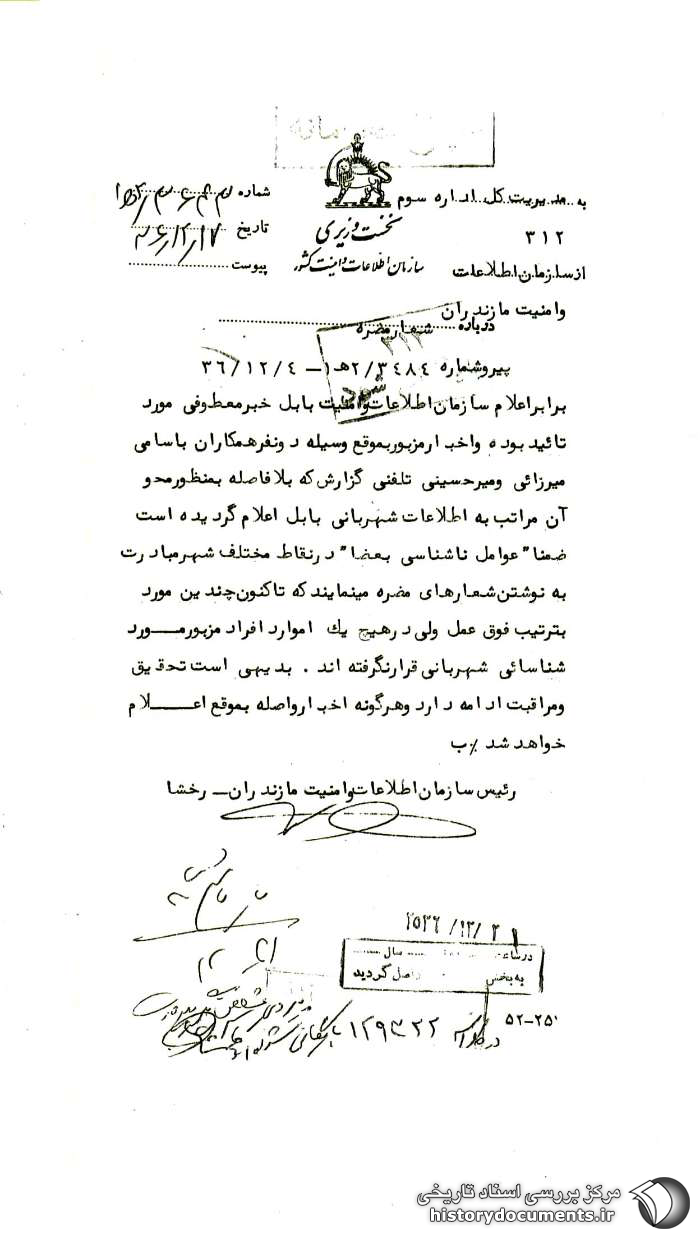 به مدیریت کل اداره سوم
۳۱۲
از سازمان اطلاعات
وامنیت مازندران
نخست وزیری
سازمان اطلاعات و امنیت کشور
شماره
تاریخ ۳۶/۱۲/۱۷
پیوست
درباره شعار مضره
۳۱۲
پیرو شماره ۲/۳۴۸۴ هـ۱ – ۳۶/۱۲/۴
برابر اعلام سازمان اطلاعات وامنیت بابل خبر معطوفی مورد
تائید بوده واخبار مزبور بموقع وسیله دونفر همکاران باسامی
میرزائی ومیرحسینی تلفنی گزارش که بلافاصله بمنظور محو
آن مراتب به اطلاعات شهربانی بابل اعلام گردیده است
ضمنا" عوامل ناشناسی بعضا" در نقاط مختلف شهر مبادرت
به نوشتن شعارهای مضره مینمایند که تاکنون چندین مورد
بترتیب فوق عمل ولی در هیچ یك اموارد افراد مزبور مورد
شناسائی شهربانی قرار نگرفته اند . بدیهی است تحقیق
ومراقبت ادامه دارد وهرگونه اخبار واصله بموقع اعلام
خواهد شد ٪ب
رئیس سازمان اطلاعات وامنیت مازندران – رخشا
۲۵۳۶/۱۲/۲۱
در ساعت سال
به بخش واصل گردید
۵۲-۲۵۰
۱۲۹۳۲۲
مرکز بررسی اسناد تاریخی
historydocuments.ir